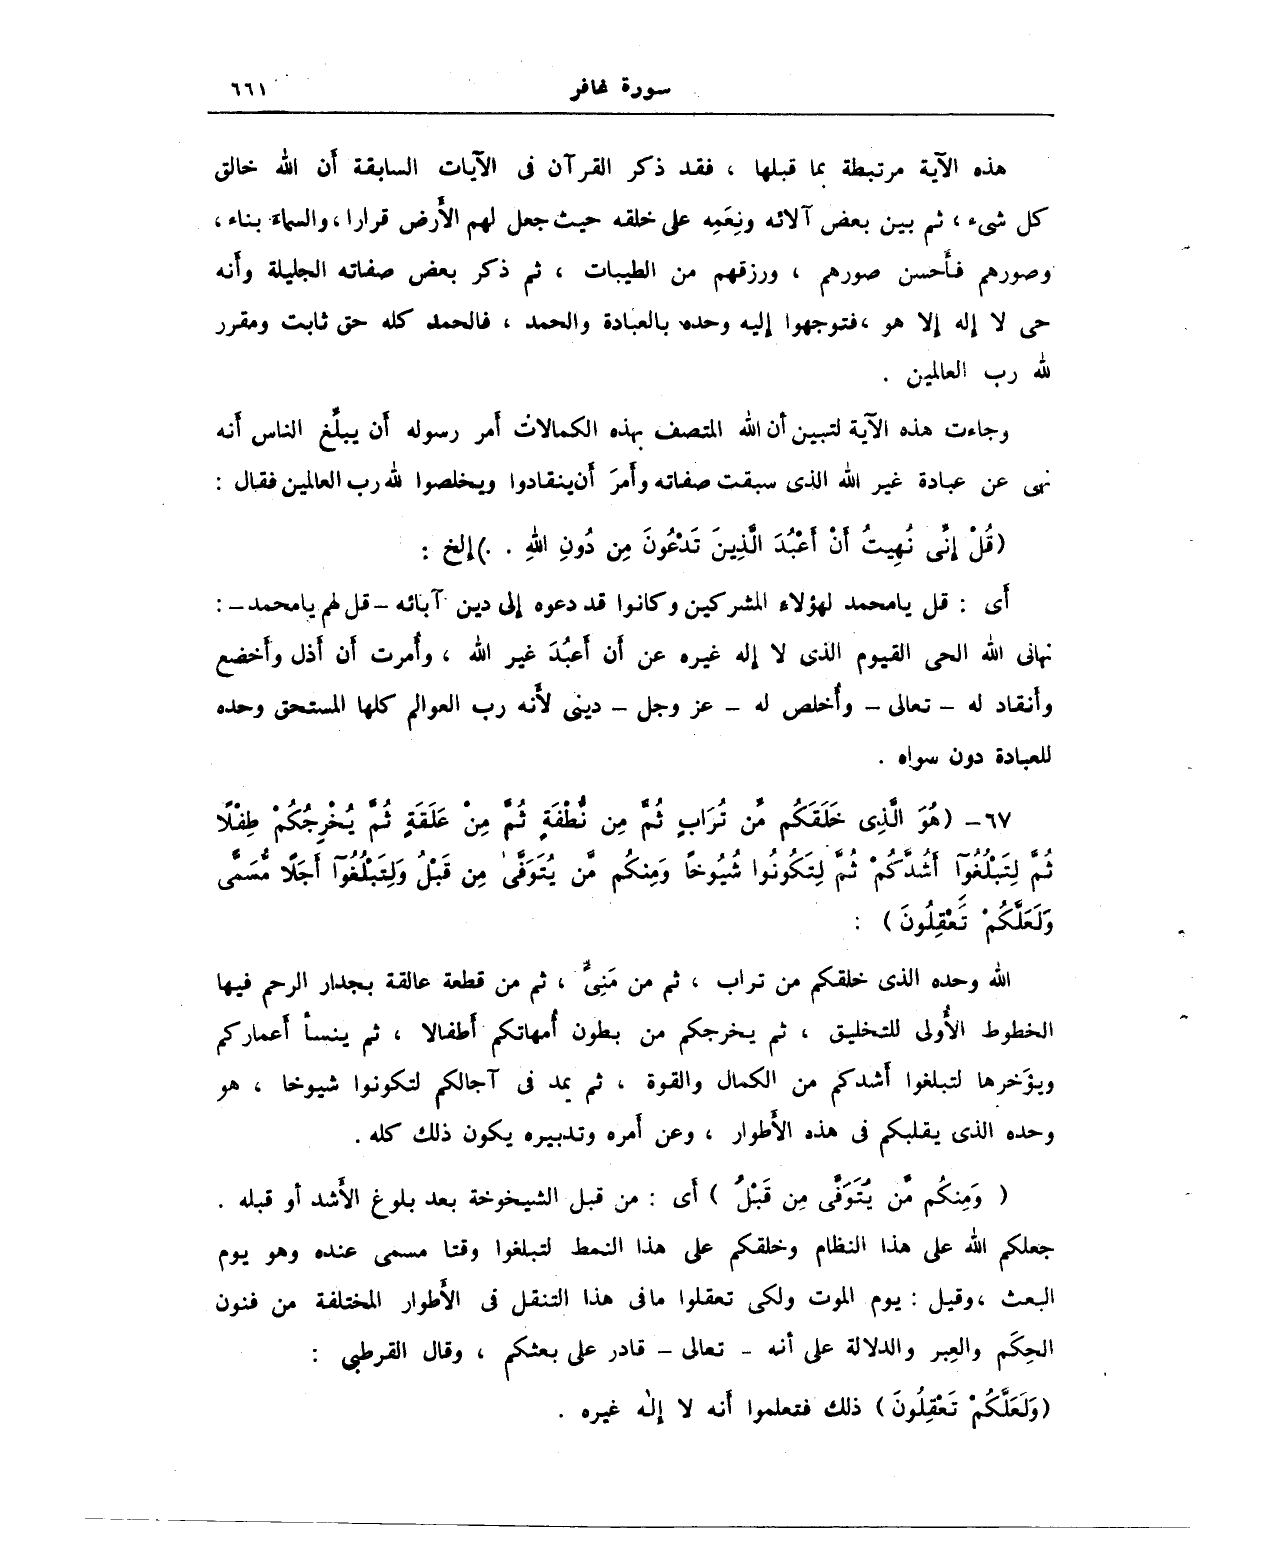 سورة غافر ٦٦١
هذه الآية مرتبطة بما قبلها ، فقد ذكر القرآن فى الآيات السابقة أن الله خالق
كل شىء ، ثم بين بعض آلائه ونِعَمِه على خلقه حيث جعل لهم الأرض قرارا ، والسماء بناء ،
وصورهم فأحسن صورهم ، ورزقهم من الطيبات ، ثم ذكر بعض صفاته الجليلة وأنه
حى لا إله إلا هو ، فتوجهوا إليه وحده بالعبادة والحمد ، فالحمد كله حق ثابت ومقرر
لله رب العالمين .
وجاءت هذه الآية لتبين أن الله المتصف بهذه الكمالات أمر رسوله أن يبلِّغ الناس أنه
نهى عن عبادة غير الله الذى سبقت صفاته وأمَرَ أن ينقادوا ويخلصوا لله رب العالمين فقال :
(قُلْ إِنِّى نُهِيتُ أَنْ أَعْبُدَ الَّذِينَ تَدْعُونَ مِن دُونِ اللهِ . .) إلخ :
أى : قل يا محمد لهؤلاء المشركين وكانوا قد دعوه إلى دين آبائه – قل لهم يا محمد – :
نهانى الله الحى القيوم الذى لا إله غيره عن أن أعبُدَ غير الله ، وأُمرت أن أذل وأخضع
وأنقاد له – تعالى – وأُخلص له – عز وجل – دينى لأنه رب العوالم كلها المستحق وحده
للعبادة دون سواه .
٦٧– (هُوَ الَّذِى خَلَقَكُم مِّن تُرَابٍ ثُمَّ مِن نُّطْفَةٍ ثُمَّ مِنْ عَلَقَةٍ ثُمَّ يُخْرِجُكُمْ طِفْلًا
ثُمَّ لِتَبْلُغُوٓا أَشُدَّكُمْ ثُمَّ لِتَكُونُوا شُيُوخًا وَمِنكُم مَّن يُتَوَفَّىٰ مِن قَبْلُ وَلِتَبْلُغُوٓا أَجَلًا مُّسَمًّى
وَلَعَلَّكُمْ تَعْقِلُونَ ) :
الله وحده الذى خلقكم من تراب ، ثم من مَنِىٍّ ، ثم من قطعة عالقة بجدار الرحم فيها
الخطوط الأُولى للتخليق ، ثم يخرجكم من بطون أُمهاتكم أطفالا ، ثم ينسأ أعماركم
ويؤَخرها لتبلغوا أشدكم من الكمال والقوة ، ثم يمد فى آجالكم لتكونوا شيوخا ، هو
وحده الذى يقلبكم فى هذه الأطوار ، وعن أمره وتدبيره يكون ذلك كله .
( وَمِنكُم مَّن يُتَوَفَّى مِن قَبْلُ ) أى : من قبل الشيخوخة بعد بلوغ الأشد أو قبله .
جعلكم الله على هذا النظام وخلقكم على هذا النمط لتبلغوا وقتا مسمى عنده وهو يوم
البعث ، وقيل : يوم الموت ولكى تعقلوا ما فى هذا التنقل فى الأطوار المختلفة من فنون
الحِكَم والعِبر والدلالة على أنه – تعالى – قادر على بعثكم ، وقال القرطبى :
(وَلَعَلَّكُمْ تَعْقِلُونَ ) ذلك فتعلموا أنه لا إلٰه غيره .